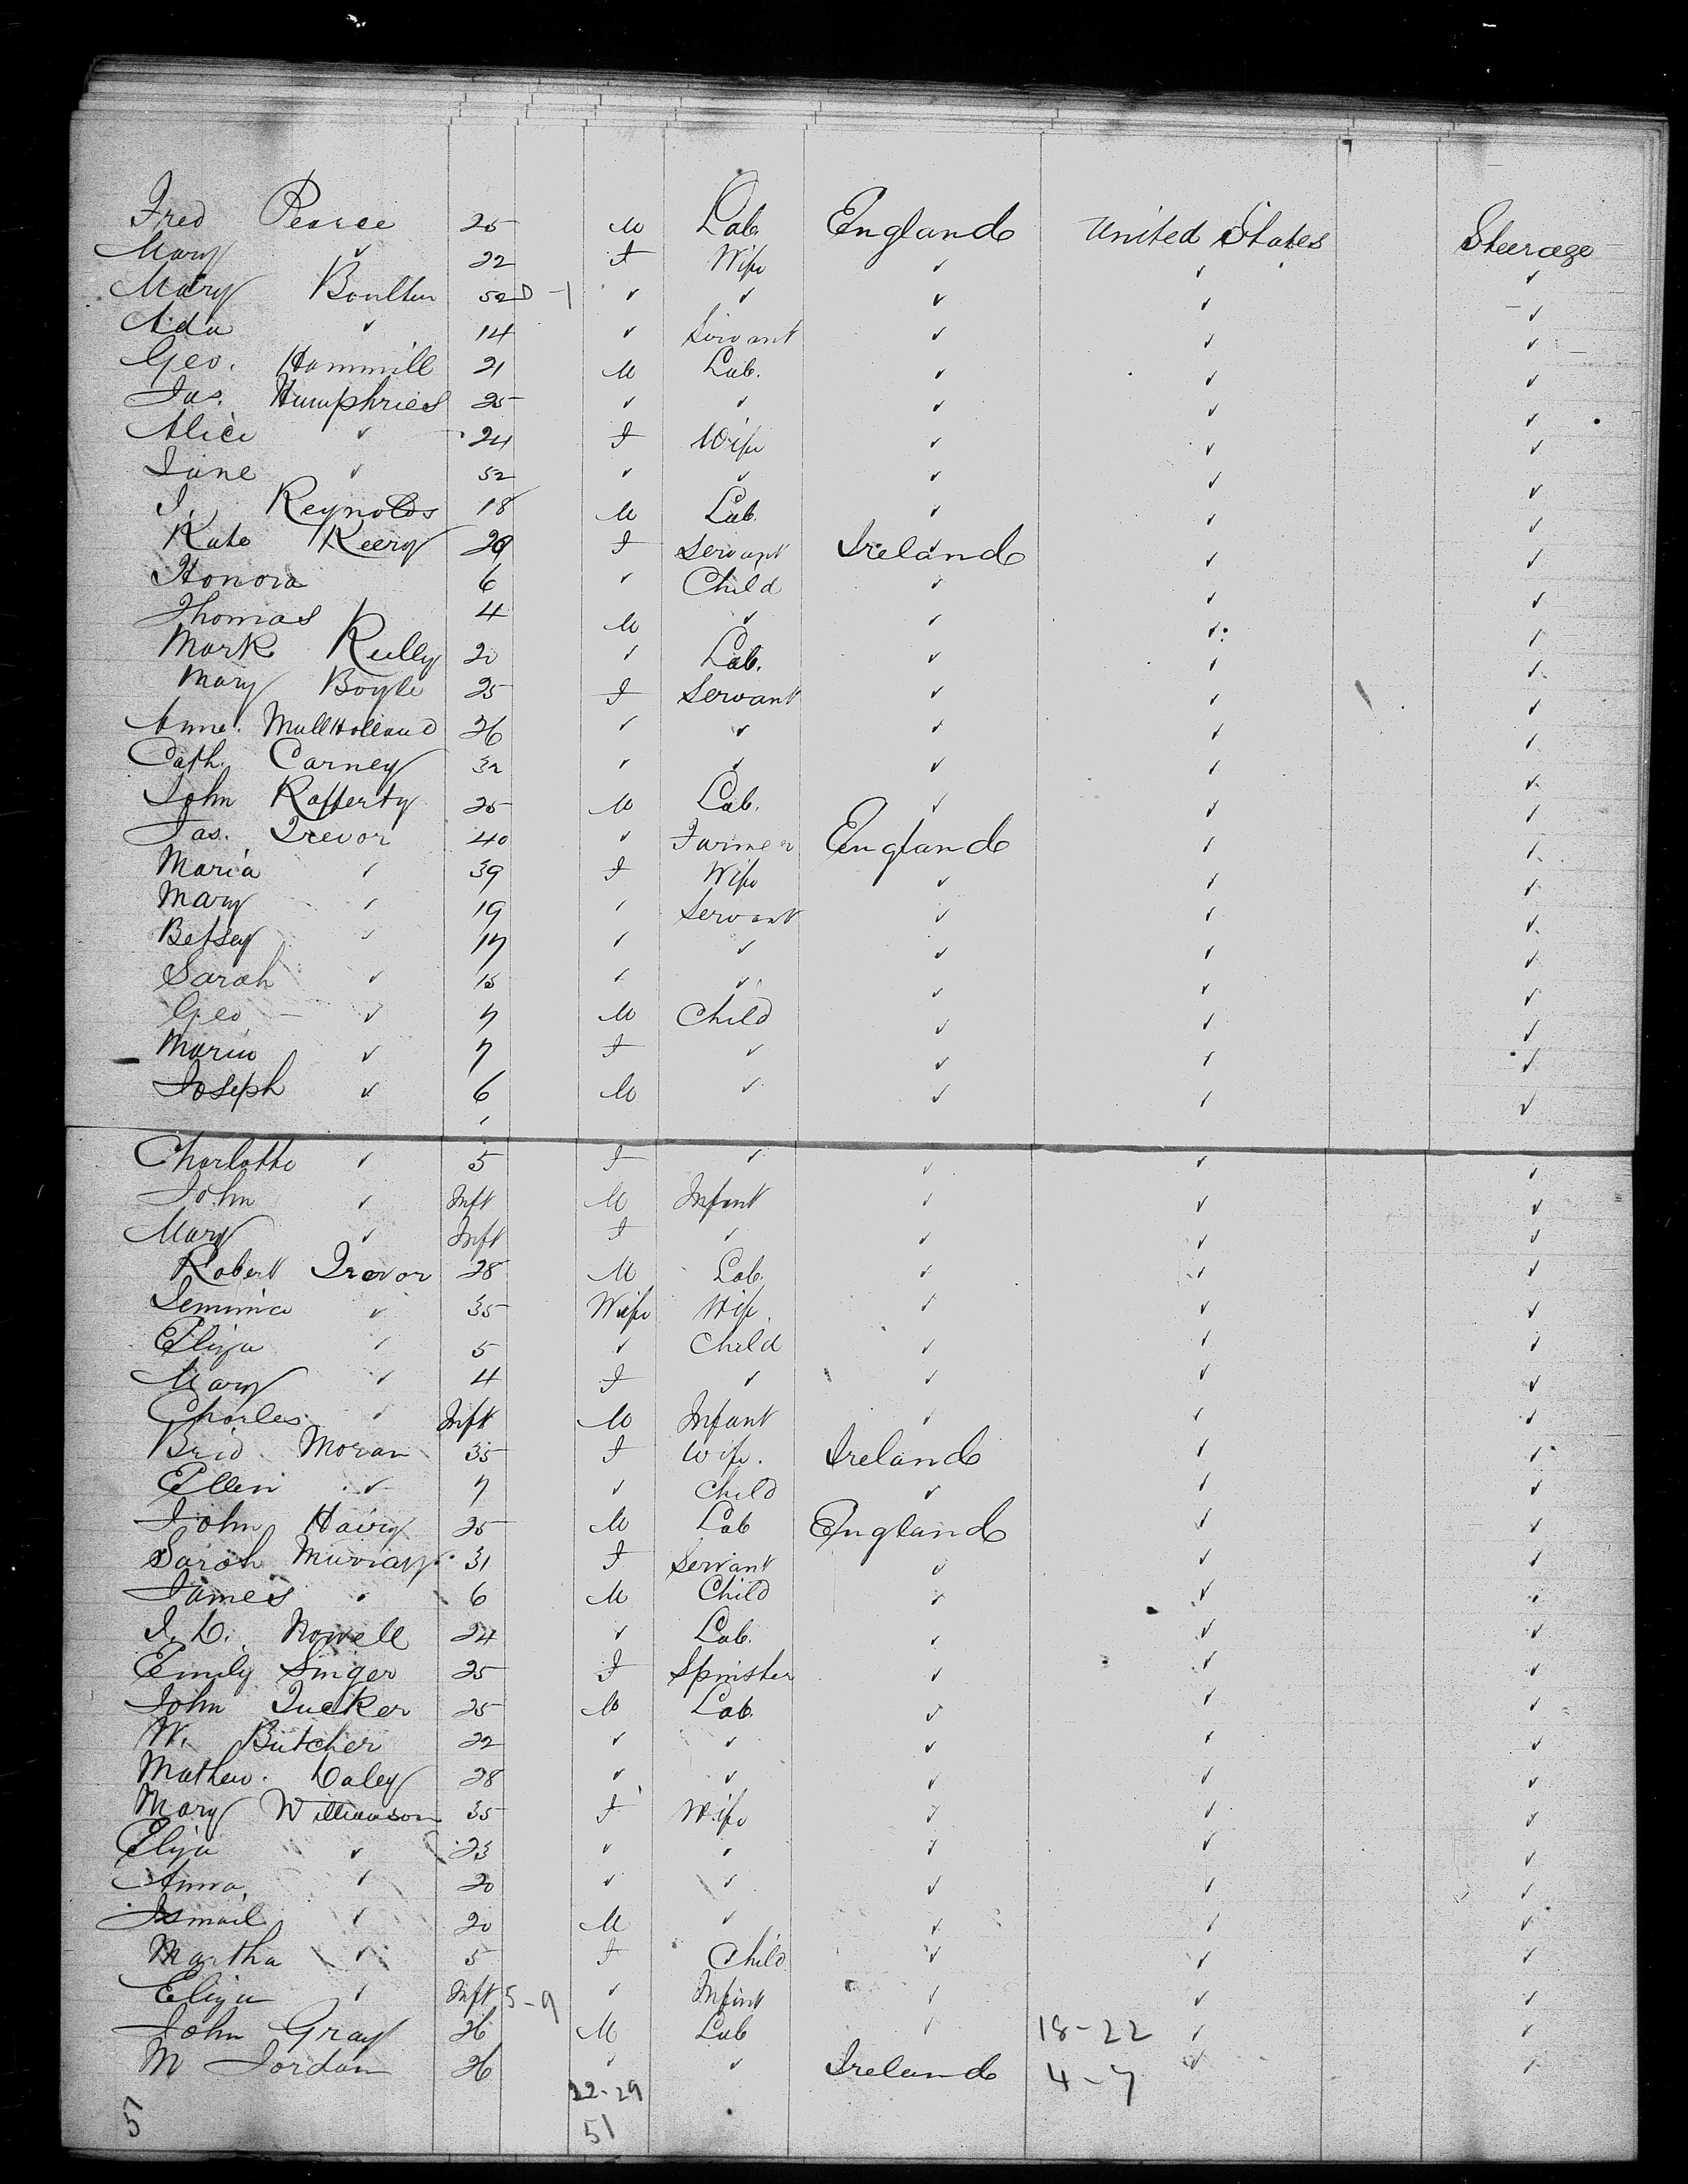 Fred Pearce 25 M Lab. England United States Steerage
Mary ✓ 22 F Wife ✓ ✓ ✓
Mary Boulten 52 D-1 ✓ ✓ ✓ ✓ ✓
Ada ✓ 14 ✓ Servant ✓ ✓ ✓
Geo. Hammill 21 M Lab. ✓ ✓ ✓
Jas. Humphries 25 ✓ ✓ ✓ ✓ ✓
Alice ✓ 24 F Wife ✓ ✓ ✓
Jane ✓ 52 ✓ ✓ ✓ ✓ ✓
J. Reynolds 18 M Lab. ✓ ✓ ✓
Kate Keery 29 F Servant Ireland ✓ ✓
Honora 6 ✓ Child ✓ ✓ ✓
Thomas 4 M ✓ ✓ ✓ ✓
Mark Reilly 20 ✓ Lab. ✓ ✓ ✓
Mary Boyle 25 F Servant ✓ ✓ ✓
Anne. MullHolland 26 ✓ ✓ ✓ ✓ ✓
Cath. Carney 32 ✓ ✓ ✓ ✓ ✓
John Rafferty 25 M Lab. ✓ ✓ ✓
Jas. Trevor 40 ✓ Farmer England ✓ ✓
Maria ✓ 39 F Wife ✓ ✓ ✓
Mary ✓ 19 ✓ Servant ✓ ✓ ✓
Betsey ✓ 17 ✓ ✓ ✓ ✓ ✓
Sarah ✓ 15 ✓ ✓ ✓ ✓ ✓
Geo ✓ 7 M Child ✓ ✓ ✓
Maria ✓ 7 F ✓ ✓ ✓ ✓
Joseph ✓ 6 M ✓ ✓ ✓ ✓
Charlotte ✓ 5 F ✓ ✓ ✓ ✓
John ✓ Inft M Infant ✓ ✓ ✓
Mary ✓ Inft F ✓ ✓ ✓ ✓
Robert Trevor 28 M Lab. ✓ ✓ ✓
Jemima ✓ 35 Wife Wife. ✓ ✓ ✓
Eliza ✓ 5 ✓ Child ✓ ✓ ✓
Mary ✓ 4 F ✓ ✓ ✓ ✓
Charles ✓ Inft M Infant ✓ ✓ ✓
Brid Moran 35 F Wife. Ireland ✓ ✓
Ellen ✓ 7 ✓ Child ✓ ✓ ✓
John Hairy 25 M Lab England ✓ ✓
Sarah Murray 31 F Servant ✓ ✓ ✓
James ✓ 6 M Child ✓ ✓ ✓
J. D. Nowell 24 ✓ Lab. ✓ ✓ ✓
Emily Singer 25 F Spinster ✓ ✓ ✓
John Tucker 25 M Lab. ✓ ✓ ✓
W. Butcher 22 ✓ ✓ ✓ ✓ ✓
Mathew. Daley 28 ✓ ✓ ✓ ✓ ✓
Mary Williamson 35 F Wife ✓ ✓ ✓
Eliza ✓ 23 ✓ ✓ ✓ ✓ ✓
Anna ✓ 20 ✓ ✓ ✓ ✓ ✓
Ismail ✓ 20 M ✓ ✓ ✓ ✓
Martha ✓ 5 F Child ✓ ✓ ✓
Eliza ✓ Inft 5-9 ✓ Infant ✓ ✓ ✓
John Gray 26 M Lab ✓ 18-22 ✓ ✓
M Jordan 26 ✓ ✓ Ireland 4-7 ✓ ✓
22-29
5 51